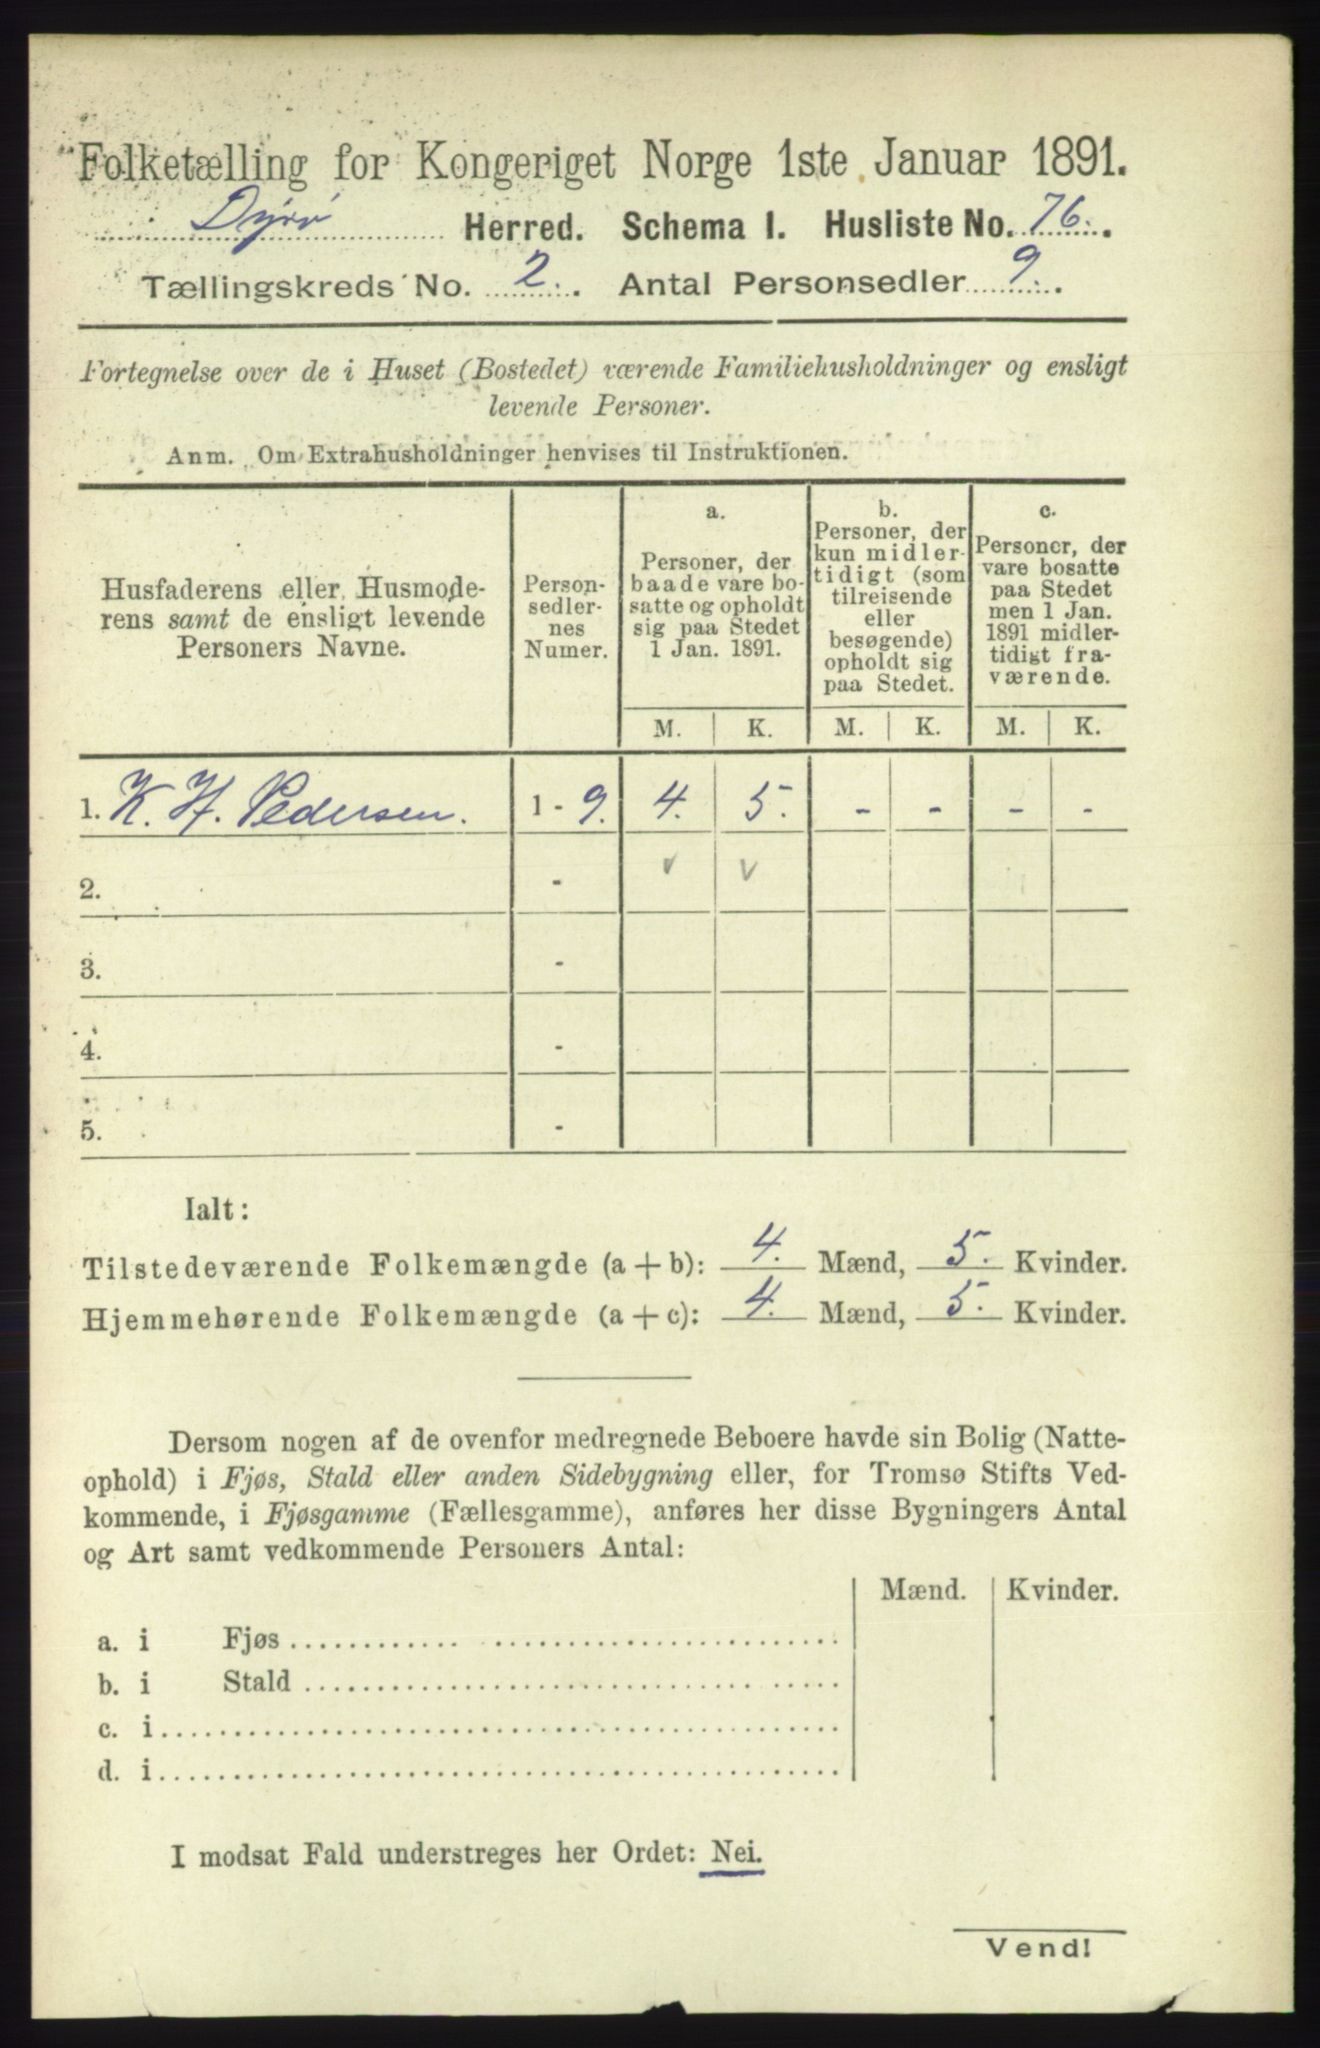 Folketælling for Kongeriget Norge 1ste Januar 1891.
Dyrø Herred. Schema I. Husliste No. 76.
Tællingskreds No. 2. Antal Personsedler 9.
Fortegnelse over de i Huset (Bostedet) værende Familiehusholdninger og ensligt
levende Personer.
Anm. Om Extrahusholdninger henvises til Instruktionen.
Husfaderens eller Husmode-
rens samt de ensligt levende
Personers Navne.
Person-
sedler-
nes
Numer.
a.
Personer, der
baade vare bo-
satte og opholdt
sig paa Stedet
1 Jan. 1891.
b.
Personer, der
kun midler-
tidigt (som
tilreisende
eller
besøgende)
opholdt sig
paa Stedet.
c.
Personer, der
vare bosatte
paa Stedet
men 1 Jan.
1891 midler-
tidigt fra-
værende.
M. K. M. K. M. K.
1. K. H. Pedersen. 1 - 9. 4. 5. - - - -
2. - v v
3. -
4. -
5. -
Ialt:
Tilstedeværende Folkemængde (a + b): 4. Mænd, 5. Kvinder.
Hjemmehørende Folkemængde (a + c): 4. Mænd, 5. Kvinder.
Dersom nogen af de ovenfor medregnede Beboere havde sin Bolig (Natte-
ophold) i Fjøs, Stald eller anden Sidebygning eller, for Tromsø Stifts Ved-
kommende, i Fjøsgamme (Fællesgamme), anføres her disse Bygningers Antal
og Art samt vedkommende Personers Antal:
Mænd. Kvinder.
a. i Fjøs
b. i Stald
c. i
d. i
I modsat Fald understreges her Ordet: Nei.
Vend!